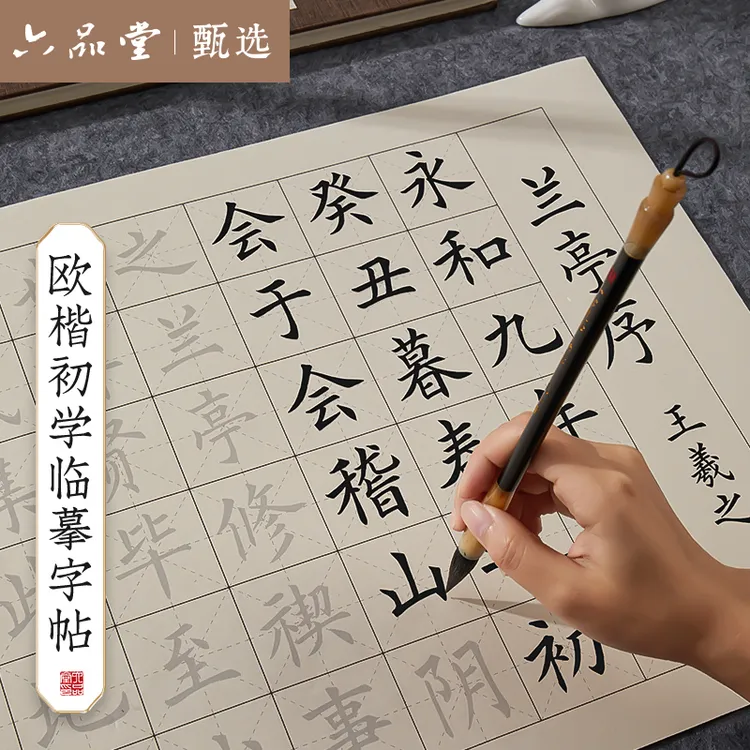 六品堂 | 甄选
欧楷初学临摹字帖
兰亭序
王羲之
永和九年
癸丑暮春
初
会于会稽山阴
之兰亭修禊事
贤毕至
集此地